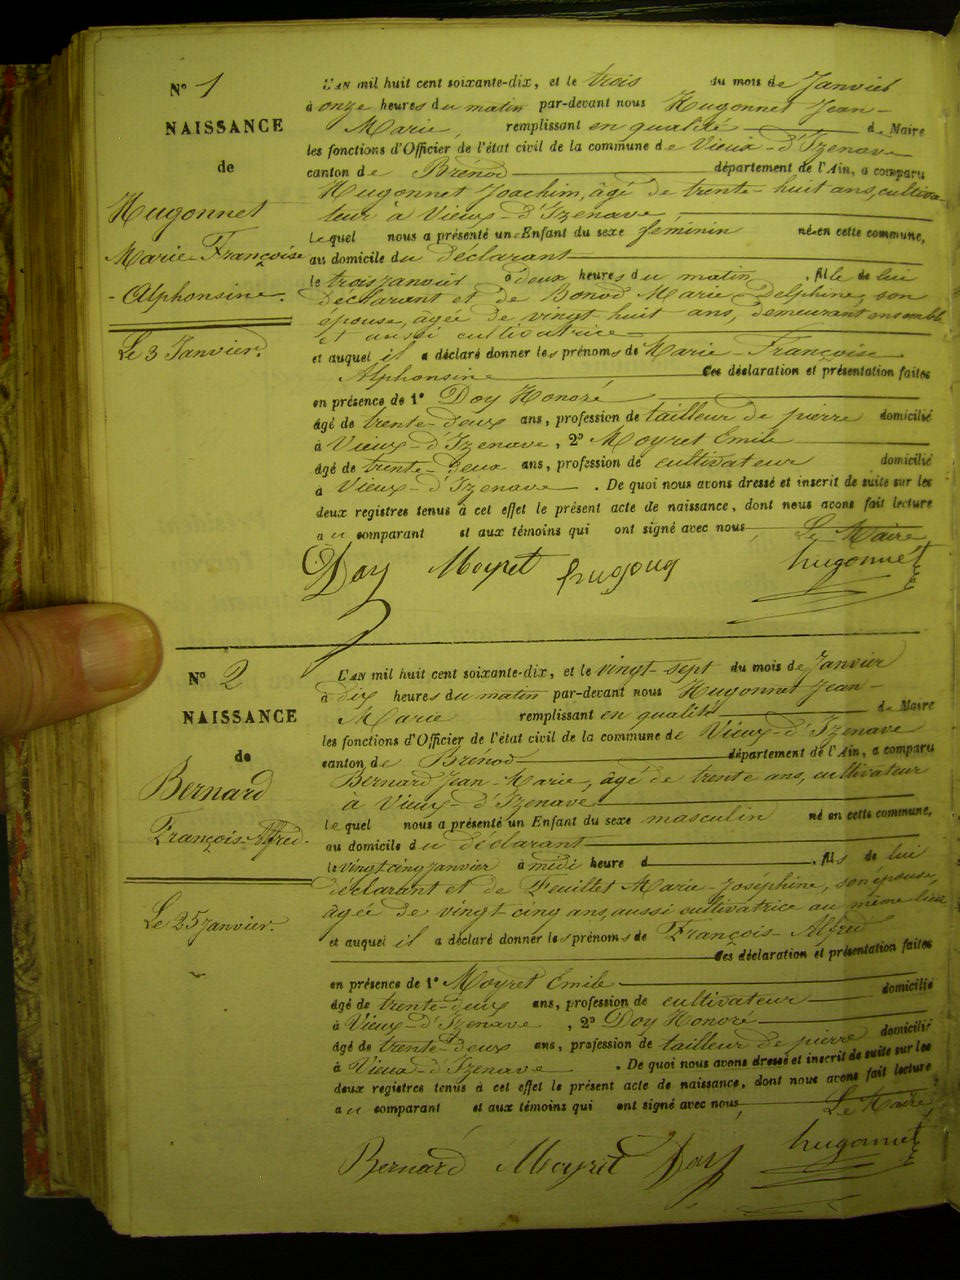 N° 1
NAISSANCE
de
Hugonnet
Marie-Françoise
-Alphonsine.
Le 3 Janvier.
L'AN mil huit cent soixante-dix, et le trois du mois de Janvier
à onze heures du matin par-devant nous Hugonnet Jean-
Marie, remplissant en qualité de Maire
les fonctions d'Officier de l'état civil de la commune de Vieux-d'Izenave
canton de Brénod département de l'Ain, a comparu
Hugonnet Joachim, âgé de trente-huit ans, cultiva-
teur à Vieux-d'Izenave,
Lequel nous a présenté un Enfant du sexe féminin né en cette commune,
au domicile du déclarant
le trois janvier à deux heures du matin, fille de lui
déclarant et de Bonod Marie Delphine, son
épouse, agée de vingt huit ans, demeurant ensemble
et aussi cultivatrice
et auquel il a déclaré donner les prénoms de Marie-Françoise
Alphonsine Ces déclaration et présentation faites
en présence de 1° Doy Honoré
âgé de trente-deux ans, profession de tailleur de pierre domicilié
à Vieux-d'Izenave, 2° Moyret Emile
âgé de trente-deux ans, profession de cultivateur domicilié
à Vieux-d'Izenave. De quoi nous avons dressé et inscrit de suite sur les
deux registres tenus à cet effet le présent acte de naissance, dont nous avons fait lecture
au comparant et aux témoins qui ont signé avec nous, Le Maire
Doy Moyret hugonnet
N° 2
NAISSANCE
de
Bernard
François-Alfred.
Le 25 janvier.
L'AN mil huit cent soixante-dix, et le vingt-sept du mois de Janvier
à dix heures du matin par-devant nous Hugonnet Jean-
Marie remplissant en qualité de Maire
les fonctions d'Officier de l'état civil de la commune de Vieux-d'Izenave
canton de Brénod département de l'Ain, a comparu
Bernard Jean-Marie, âgé de trente ans, cultivateur
à Vieux-d'Izenave
lequel nous a présenté un Enfant du sexe masculin né en cette commune,
au domicile du déclarant
le vingt cinq janvier à midi heure d, fils de lui
déclarant et de Feuillet Marie-Joséphine, son épouse,
âgée de vingt-cinq ans, aussi cultivatrice au même lieu
et auquel il a déclaré donner les prénoms de François-Alfred
Ces déclaration et présentation faites
en présence de 1° Moyret Emile
âgé de trente-deux ans, profession de cultivateur domicilié
à Vieux-d'Izenave, 2° Doy Honoré
âgé de trente-deux ans, profession de tailleur de pierre domicilié
à Vieux-d'Izenave. De quoi nous avons dressé et inscrit de suite sur les
deux registres tenus à cet effet le présent acte de naissance, dont nous avons fait lecture,
au comparant et aux témoins qui ont signé avec nous, Le Maire,
Bernard Moyret Doy hugonnet